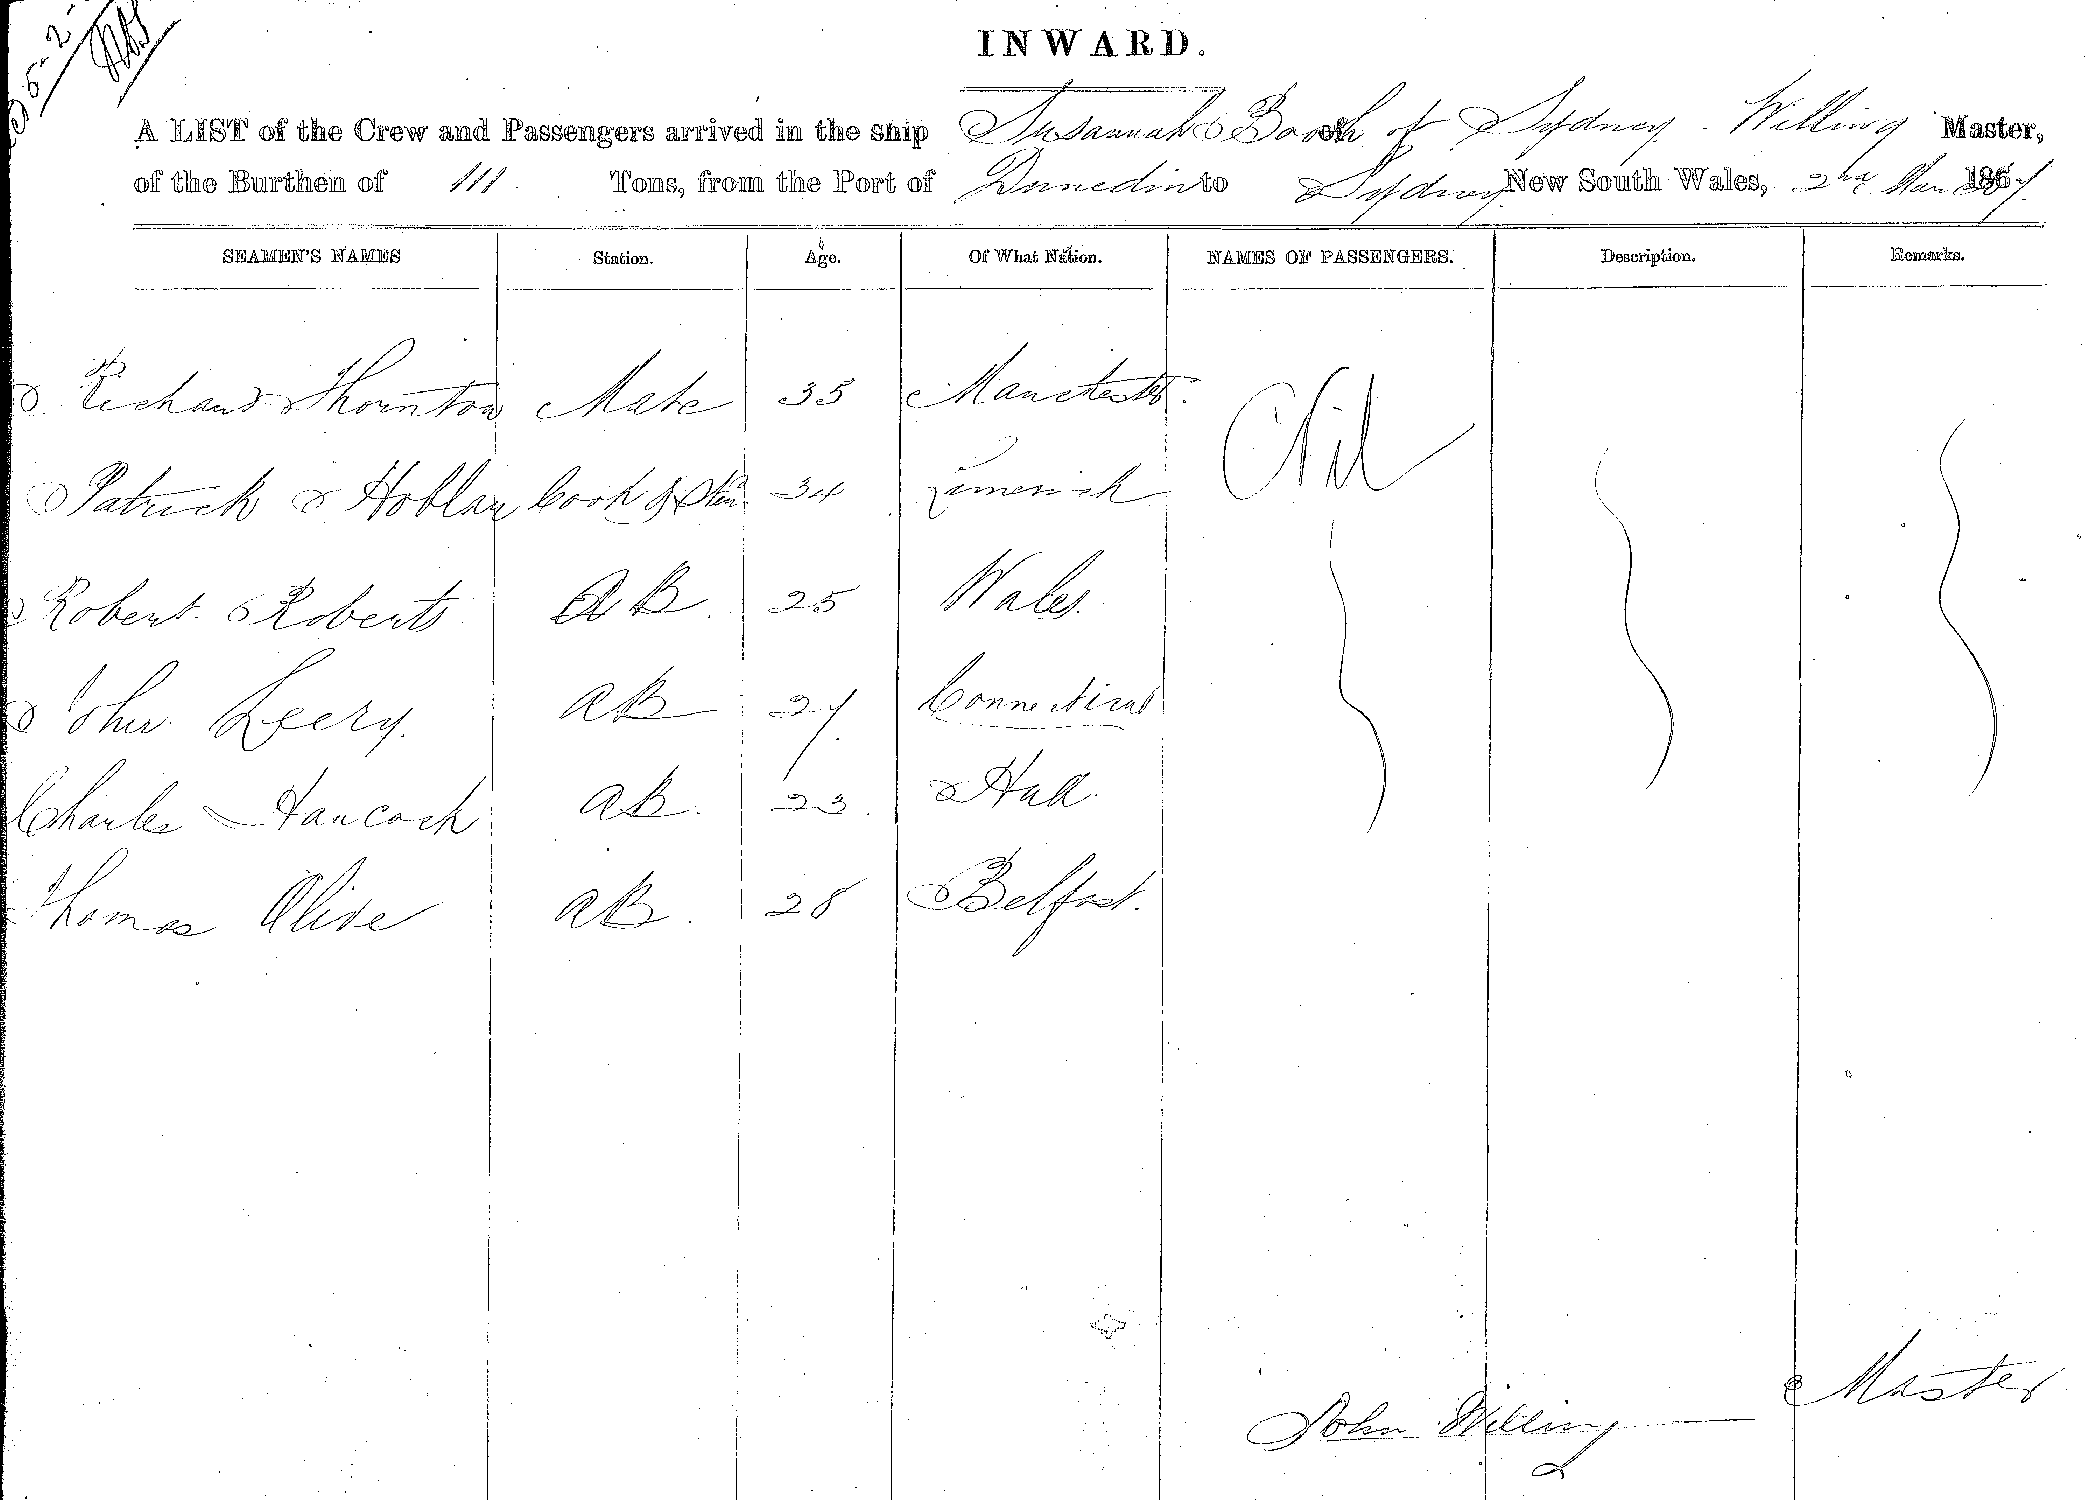 INWARD.
A LIST of the Crew and Passengers arrived in the ship Susannah Booth of Sydney. Willing Master,
of the Burthen of 111 Tons, from the Port of Dunedin to Sydney New South Wales, 2nd 1867.
SEAMEN'S NAMES Station. Age. Of What Nation. NAMES OF PASSENGERS. Description. Remarks.
Richard Thornton Mate 35 Manchester. Nil
Patrick Hoblan Cook & 34 Limerick
Robert Roberts AB. 25 Wales.
John Leery. AB 27. Connecticut
Charles Hancock AB. 23. Hull.
Thomas Olive AB. 28 Belfast.
John Willing Master